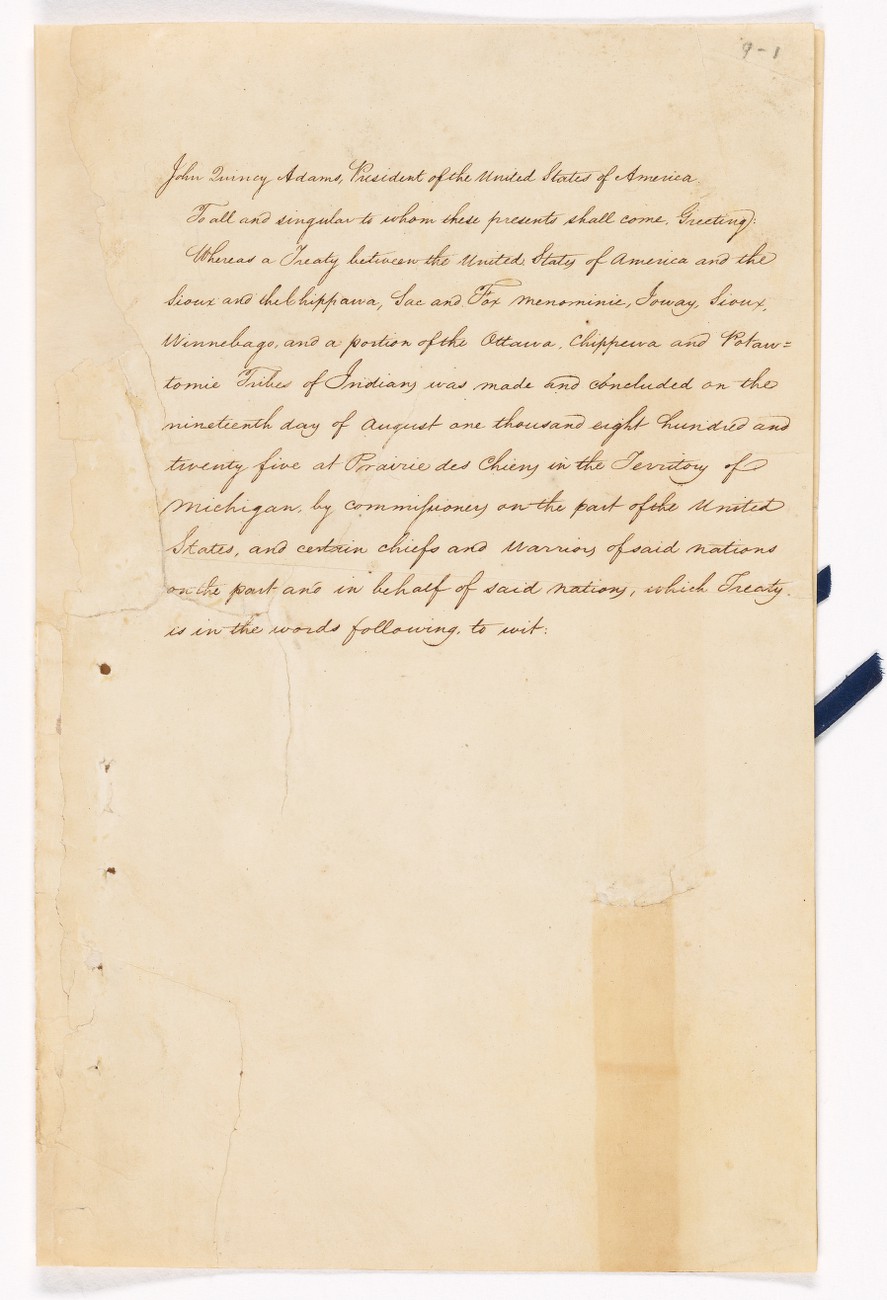 9-1
John Quincy Adams, President of the United States of America
To all and singular to whom these presents shall come, Greeting:
Whereas a Treaty between the United States of America and the
Sioux and the Chippawa, Sac and Fox Menominie, Ioway, Sioux,
Winnebago, and a portion of the Ottawa, Chippewa and Potaw=
tomie Tribes of Indians was made and concluded on the
nineteenth day of August one thousand eight hundred and
twenty five at Prairie des Chiens in the Territory of
Michigan, by commissioners on the part of the United
States, and certain chiefs and Warriors of said nations
on the part and in behalf of said nations, which Treaty
is in the words following, to wit: